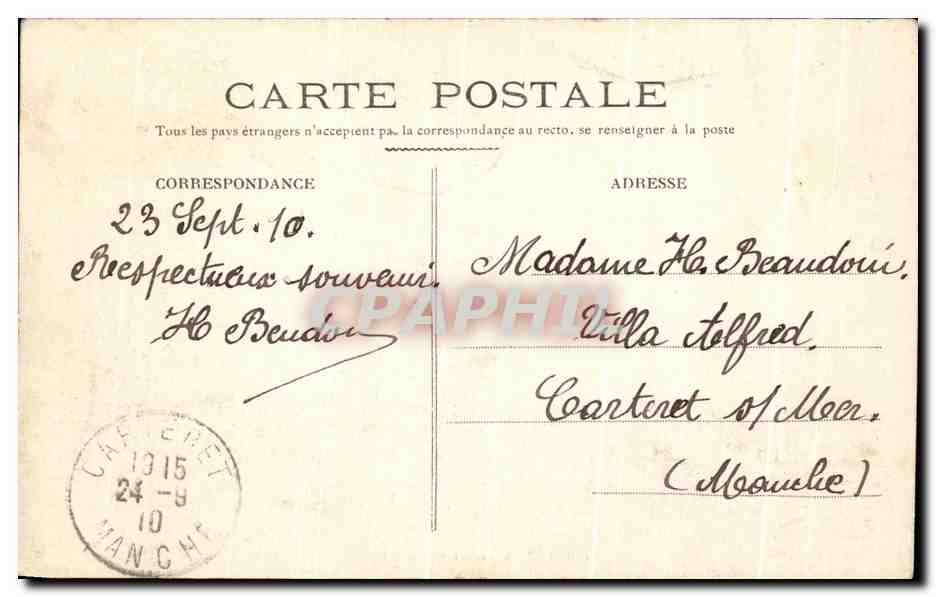 CARTE POSTALE
Tous les pays étrangers n'acceptent pas la correspondance au recto, se renseigner à la poste
CORRESPONDANCE
23 Sept. 10.
Respectueux souvenir.
H Beudon
ADRESSE
Madame H. Beaudouin.
Villa Alfred.
Carteret s/Mer.
(Manche)
CARTERET
19 15
24 - 9
10
MANCHE
CPAPHIL